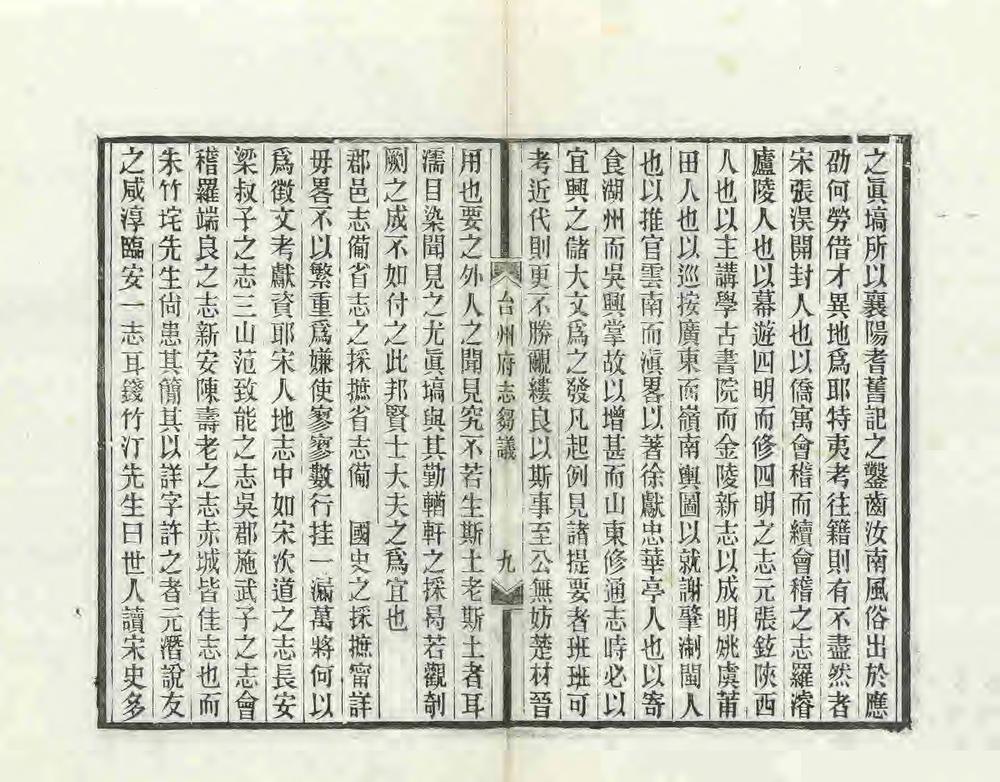 之眞塙所以襄陽耆舊記之鑿齒汝南風俗出於應
劭何勞借才異地爲耶特夷考往籍則有不盡然者
宋張淏開封人也以僑寓會稽而續會稽之志羅濬
廬陵人也以幕遊四明而修四明之志元張鉉陝西
人也以主講學古書院而金陵新志以成明姚虞莆
田人也以巡按廣東而嶺南輿圖以就謝肇淛閩人
也以推官雲南而滇畧以著徐獻忠華亭人也以寄
食湖州而吳興掌故以增甚而山東修通志時必以
宜興之儲大文爲之發凡起例見諸提要者班班可
考近代則更不勝覼縷良以斯事至公無妨楚材晉
台州府志芻議
九
用也要之外人之聞見究不若生斯土老斯土者耳
濡目染聞見之尤眞塙與其勤輶軒之採曷若觀剞
劂之成不如付之此邦賢士大夫之爲宜也
郡邑志備省志之採摭省志備 國史之採摭甯詳
毋畧不以繁重爲嫌使寥寥數行挂一漏萬將何以
爲徵文考獻資耶宋人地志中如宋次道之志長安
梁叔子之志三山范致能之志吳郡施武子之志會
稽羅端良之志新安陳壽老之志赤城皆佳志也而
朱竹垞先生尙患其簡其以詳字許之者元潛說友
之咸淳臨安一志耳錢竹汀先生曰世人讀宋史多